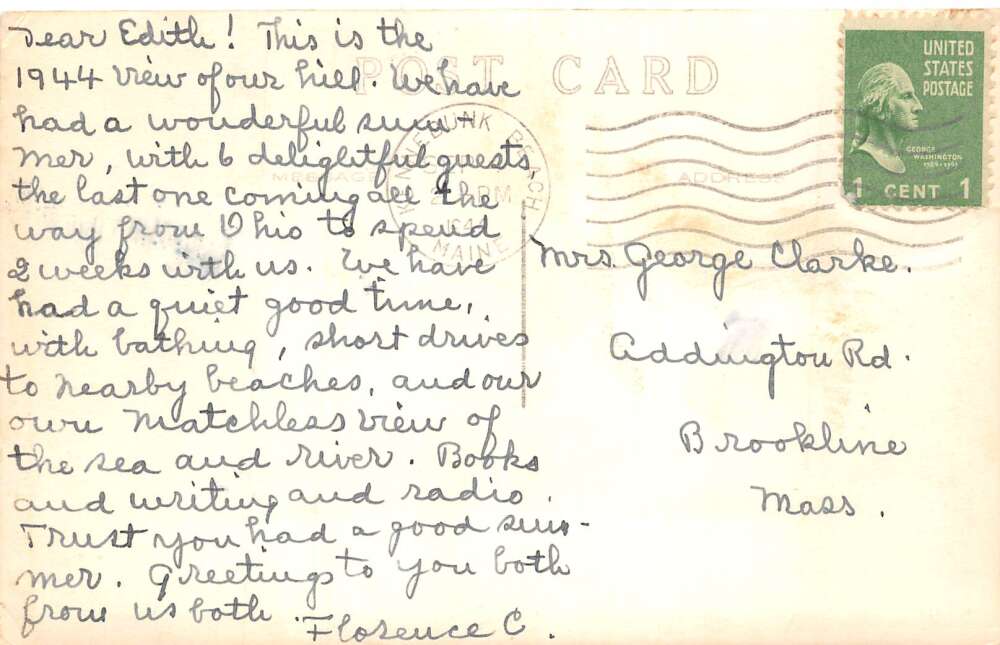 Dear Edith! This is the
1944 view of our hill. We have
had a wonderful sum-
mer, with 6 delightful guests
the last one coming all the
way from Ohio to spend
2 weeks with us. We have
had a quiet good time,
with bathing, short drives
to nearby beaches, and our
own matchless view of
the sea and river. Books
and writing and radio.
Trust you had a good sum-
mer. Greetings to you both
from us both.
Florence C.
POST CARD
MESSAGE
ADDRESS
KENNEBUNK BEACH
PM
MAINE
UNITED
STATES
POSTAGE
GEORGE
WASHINGTON
1789-1797
1 CENT 1
Mrs. George Clarke.
Addington Rd.
Brookline
Mass.